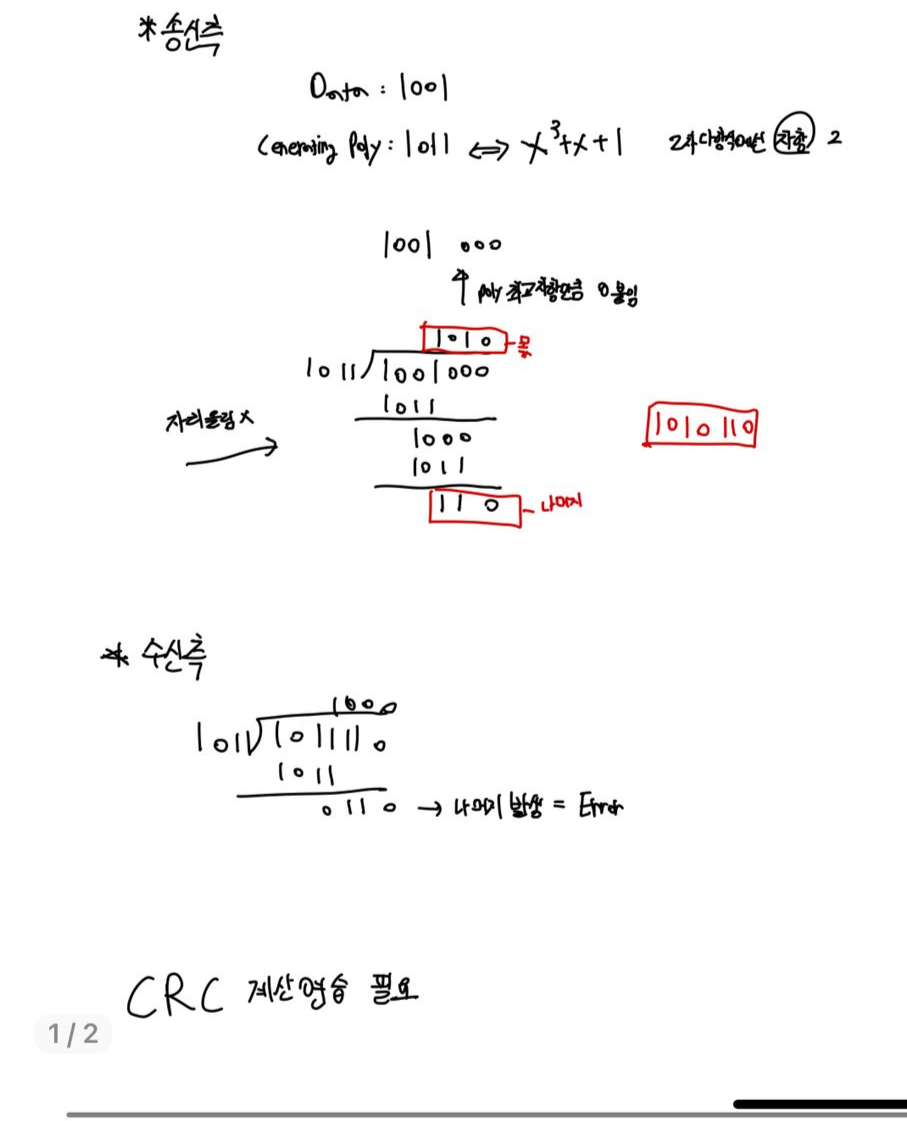 *송신측
Data : 1001
Generating Poly : 1011 ⇔ x³+x+1
차항 2
1001 000
↑ poly 최고차항만큼 0 붙임
1010 - 몫
1011 1001000
자리올림 x
1011
1010 110
1000
1011
110 - 나머지
* 수신측
1000
1011 1011110
1011
0110 → 나머지 발생 = Error
CRC 계산연습 필요
1/2